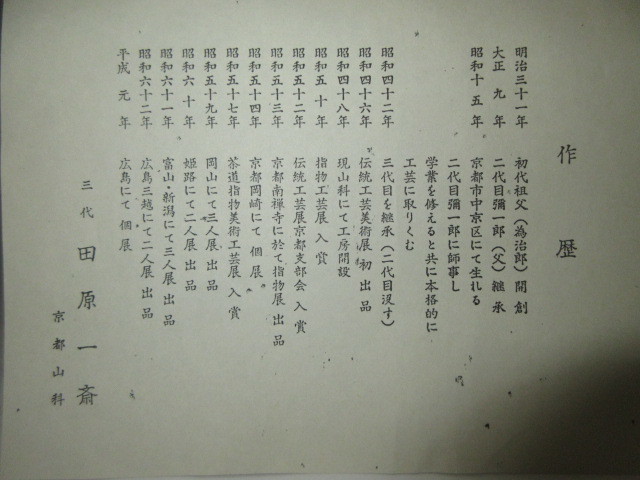 作歴
明治三十一年 初代祖父（為治郎）開創
大正九年 二代目彌一郎（父）継承
昭和十五年 京都市中京区にて生れる
二代目彌一郎に師事し
学業を修えると共に本格的に
工芸に取りくむ
昭和四十二年 三代目を継承（二代目没す）
昭和四十六年 伝統工芸美術展 初出品
昭和四十八年 現山科にて工房開設
昭和五十年 指物工芸展 入賞
昭和五十二年 伝統工芸展京都支部会 入賞
昭和五十三年 京都南禅寺に於て指物展 出品
昭和五十四年 京都岡崎にて個展
昭和五十七年 茶道指物美術工芸展 入賞
昭和五十九年 岡山にて三人展 出品
昭和六十年 姫路にて二人展 出品
昭和六十一年 富山・新潟にて三人展 出品
昭和六十二年 広島三越にて二人展 出品
平成元年 広島にて個展
三代 田原一斎
京都山科